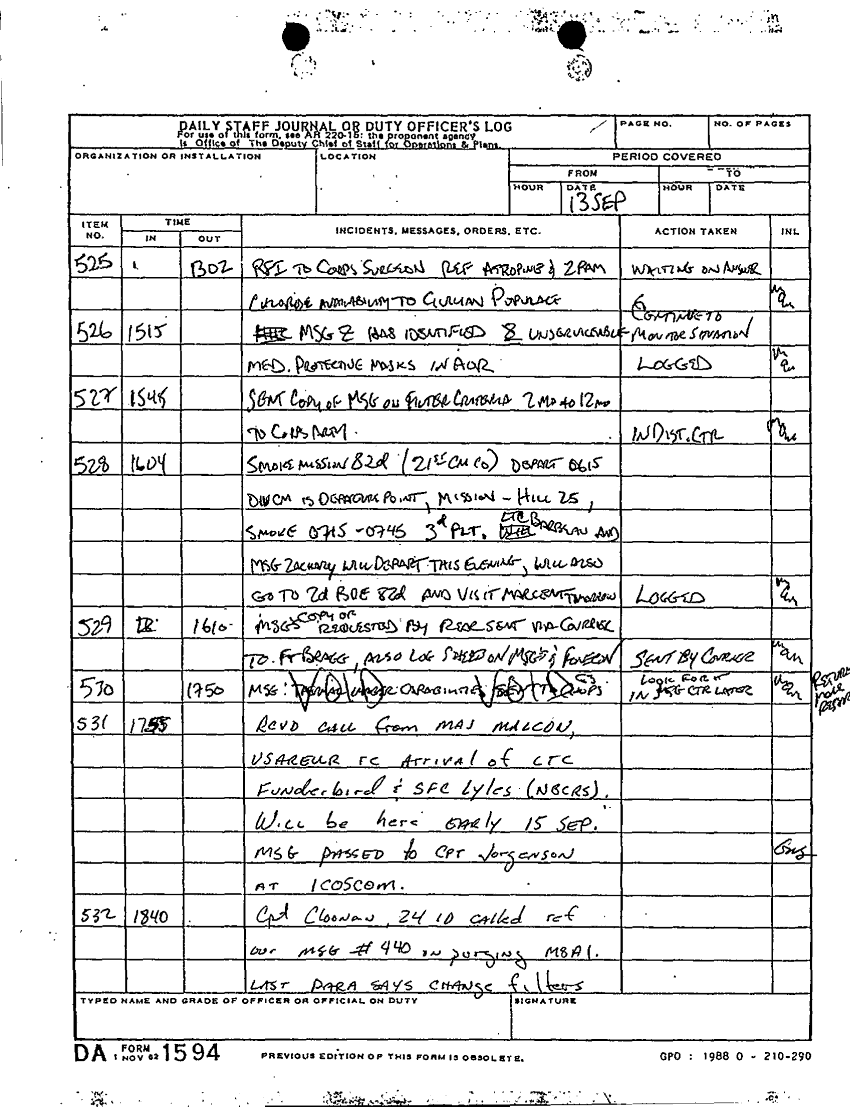 DAILY STAFF JOURNAL OR DUTY OFFICER'S LOG
For use of this form, see AR 220-15; the proponent agency
is Office of The Deputy Chief of Staff for Operations & Plans.
PAGE NO.
NO. OF PAGES
ORGANIZATION OR INSTALLATION
LOCATION
PERIOD COVERED
FROM
TO
HOUR
DATE
HOUR
DATE
13 SEP
ITEM NO.
TIME
IN
OUT
INCIDENTS, MESSAGES, ORDERS, ETC.
ACTION TAKEN
INL
525 1302 RFI TO CORPS SURGEON REF ATROPINE & 2PAM WAITING ON ANSWER
CHLORIDE AVAILABILITY TO CIVILIAN POPULACE
526 1515 MSG Z HAS IDENTIFIED 8 UNSERVICEABLE CONTINUE TO MONITOR SITUATION
MED. PROTECTIVE MASKS IN AOR LOGGED
527 1545 SENT COPY OF MSG ON FILTER CRITERIA 2 MO to 12 MO
TO CORPS ARM. IN DIST. CTR
528 1604 SMOKE MISSION 82d (21ST CM CO) DEPART 0615
DIVCM IS DEPARTURE POINT, MISSION - HILL 25,
SMOKE 0715 - 0745 3d PLT. LTC AND
MSG ZACHARY WILL DEPART THIS EVENING, WILL ALSO
GO TO 2d BDE 82d AND VISIT MARCENT TOMORROW LOGGED
529 1610 COPY OF MSGS REQUESTED BY REAR SENT VIA COURIER
TO FT BRAGG, ALSO LOG ON MSG'S & SENT BY COURIER
530 1750 MSG: CAPABILITIES VOID LOOK FOR IT
IN MSG CTR LATER
531 1755 RCVD CALL from MAJ MALCON,
USAREUR Arrival of LTC
Funderbird & SFC Lyles (NBCRS).
Will be here EARLY 15 SEP.
MSG PASSED to CPT Jorgenson
AT 1COSCOM.
532 1840 Cpt Cloonan, 24 ID called ref
our MSG # 440 on purging M8A1.
LAST PARA SAYS CHANGE filters
TYPED NAME AND GRADE OF OFFICER OR OFFICIAL ON DUTY
SIGNATURE
DA FORM 1 NOV 62 1594
PREVIOUS EDITION OF THIS FORM IS OBSOLETE.
GPO : 1988 O - 210-290